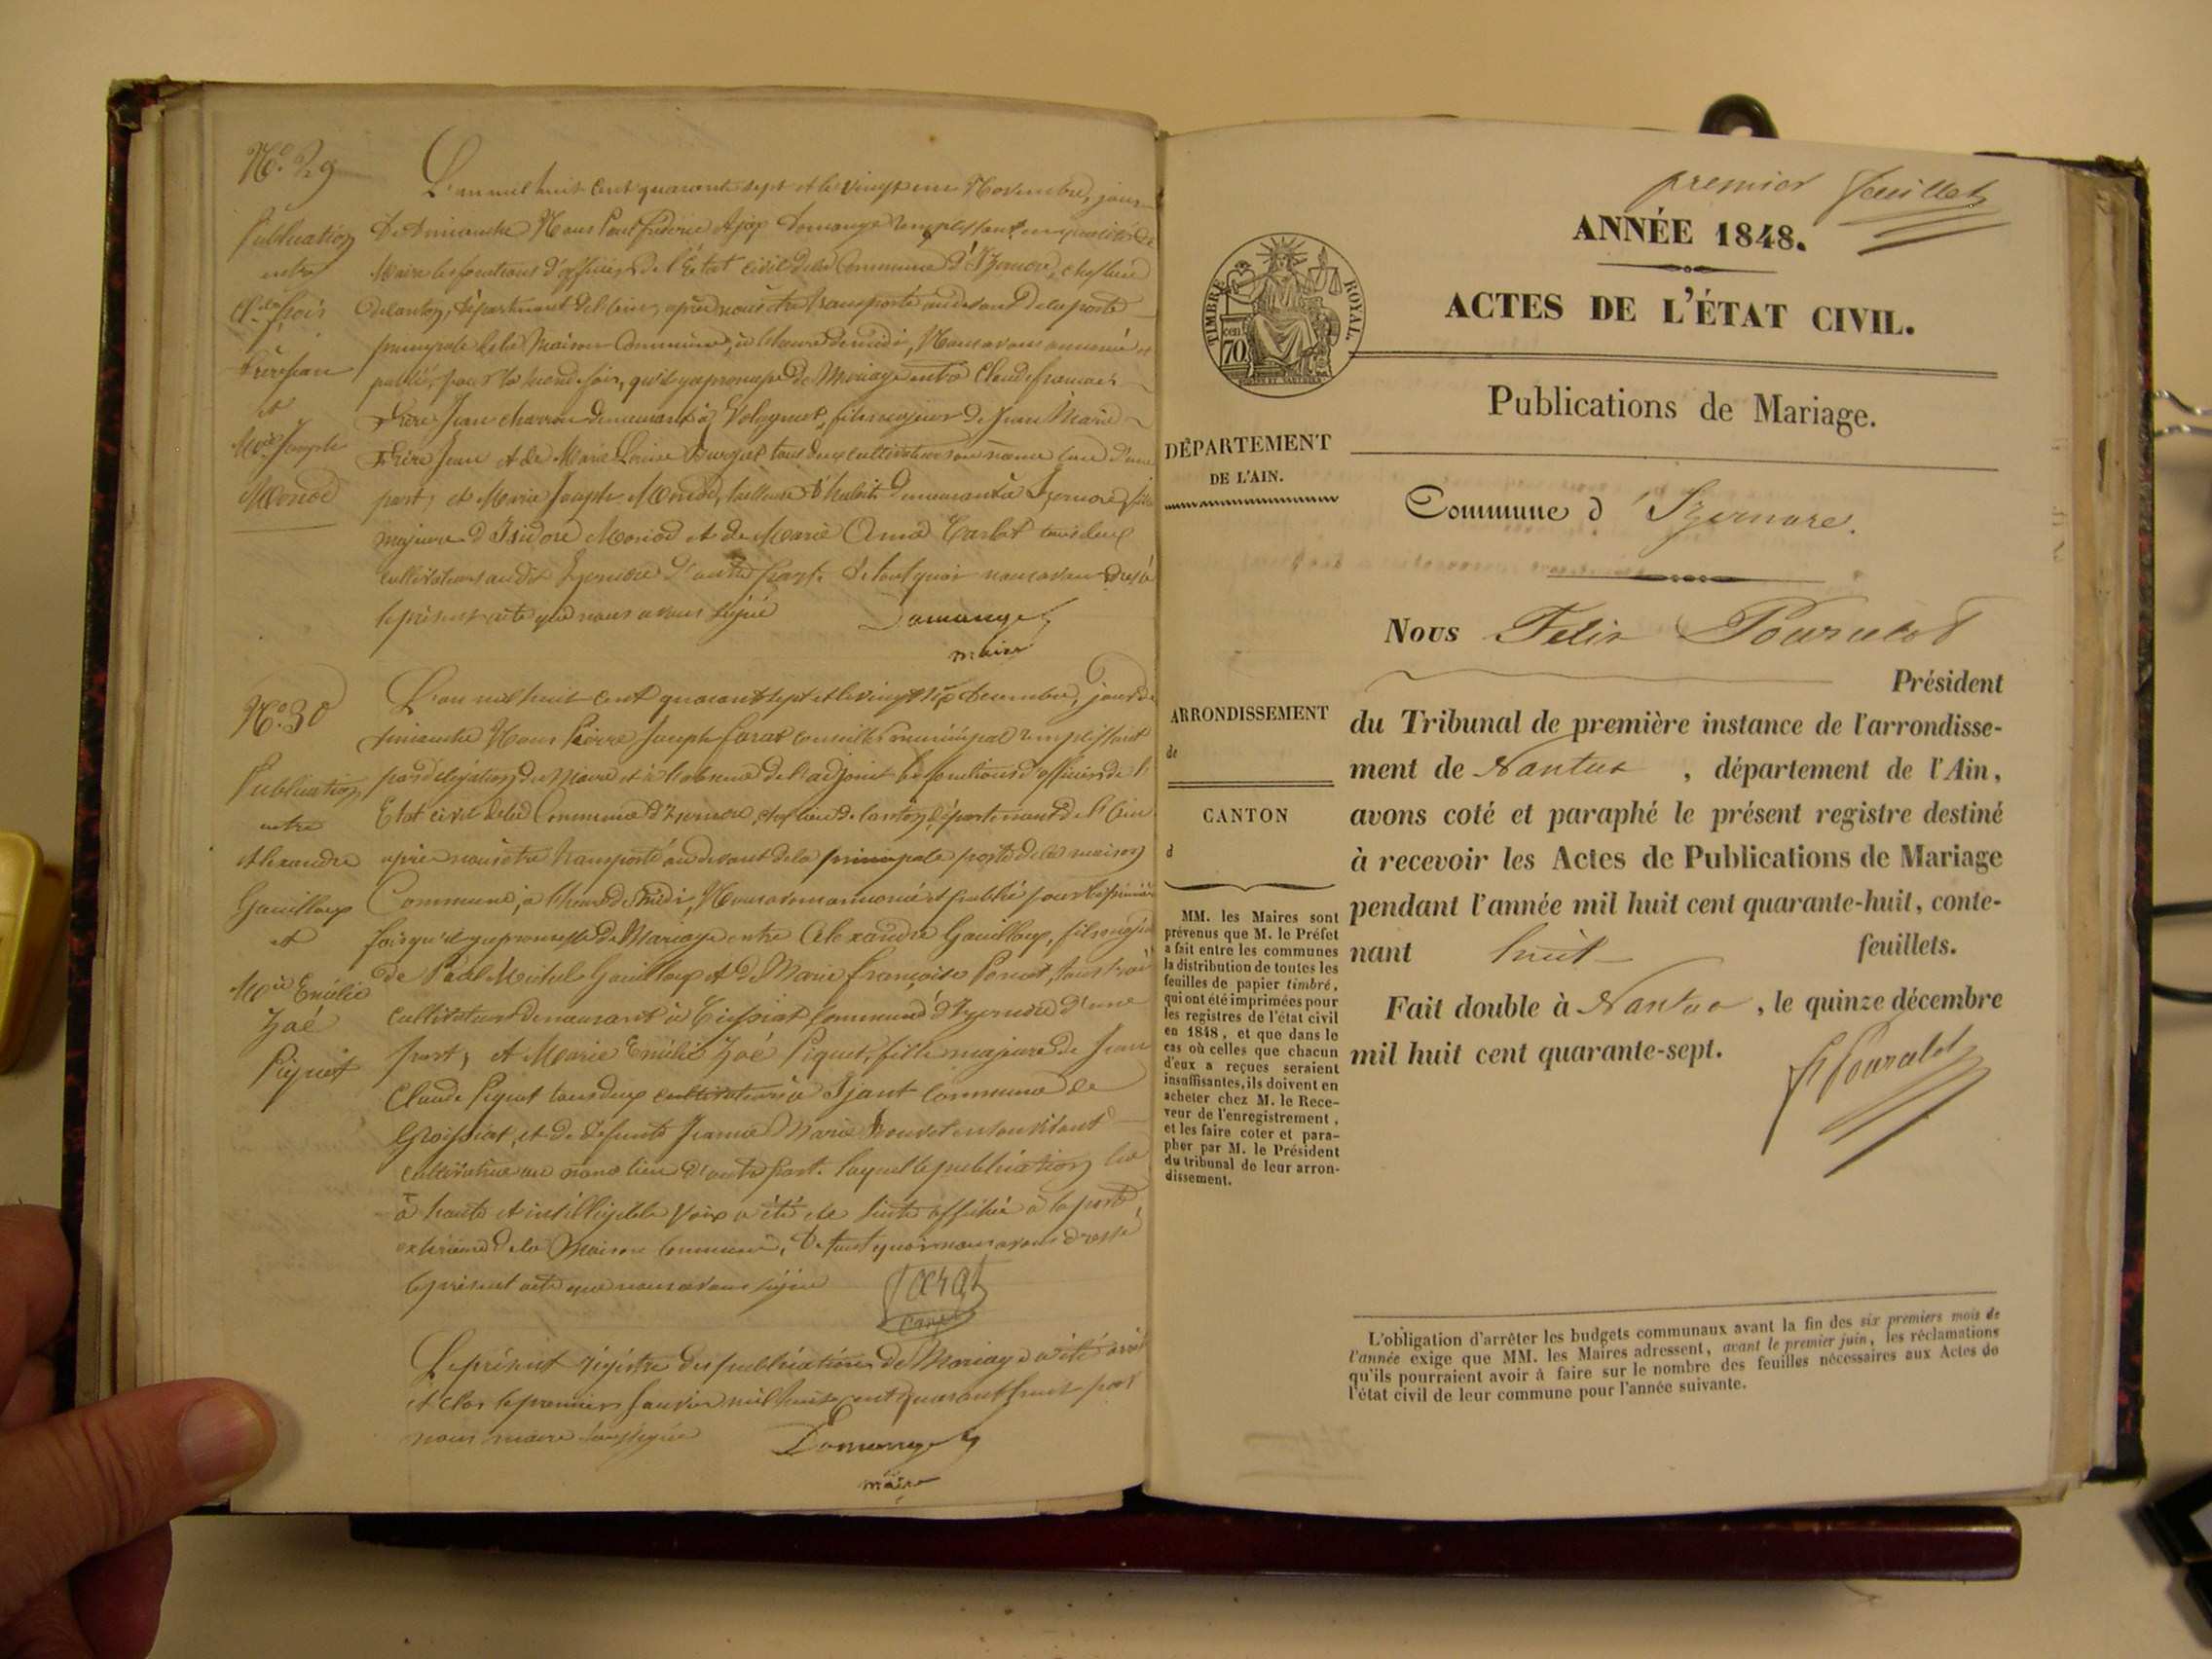 N.º 29
Publication
entre
Cl.de fçois
frère jean
et
M.ie Joseph
Moniod
L'an mil huit cent quarante sept et le vingt une Novembre, jour
De Dimanche Nous Paul fréderic Domange remplissant en qualité de
Maire les fonctions d'officier de l'état civil de la Commune d'Izernore, chef lieu
De canton, Département de l'ain, après nous être transporté au devant de la porte
principale de la Maison Commune, à l'heure de midi, Nous avons annoncé et
publié, pour la seconde fois, qu'il y a promesse de Mariage entre Claude françois
frère Jean charron demeurant à Volognat, fils majeur de Jean Marie
Frère Jean et de Marie Louise tous deux cultivateurs au même lieu d'une
part, et Marie Joseph Moniod, tailleuse d'habits demeurant à Izernore, fille
majeure d'Isidore Moniod et de Marie Anne Carlot tous deux
cultivateurs audit Izernore D'autre part. De tout quoi nous avons dressé
le présent acte que nous avons signé Domange
maire
N.º 30
Publication
entre
Alexandre
Gouilloux
et
M.ie Emélie
Zoé
Piquet
L'an mil huit cent quarante sept et le vingt six décembre, jour de
dimanche Nous Pierre Joseph farat conseiller municipal remplissant
par délégation du Maire et à l'absence de l'adjoint les fonctions d'officier de l'
Etat civil de la Commune d'Izernore, chef lieu de canton, département de l'Ain
après nous être transporté au devant de la principale porte de la maison
Commune, à l'heure de Midi, Nous avons annoncé et publié pour la première
fois qu'il y a promesse de Mariage entre Alexandre Gouilloux, fils majeur
de Paul Michel Gouilloux et de Marie françoise Poncet, tous trois
cultivateurs demeurant à Tiffoiat, commune d'Izernore d'une
part, et Marie Emélie Zoé Piquet, fille majeure de Jean
Claude Piquet tous deux cultivateurs à Ijean Commune de
Groissiat, et de defunte Jeanne Marie Bouvet en son vivant
cultivatrice au même lieu d'autre part. laquelle publication lue
à haute et intelligible voix a été de suite affichée à la porte
extérieure de la Maison Commune, De tout quoi nous avons dressé
le présent acte que nous avons signé farat
Le présent régistre des publications de Mariage a été arrêté
et clos le premier Janvier mil huit cent quarante huit par
nous maire soussigné Domange
maire
premier feuillet
ANNÉE 1848.
TIMBRE ROYAL.
cen 70
ACTES DE L'ÉTAT CIVIL.
Publications de Mariage.
DÉPARTEMENT
DE L'AIN.
Commune d'Izernore.
Nous Felix Pourulot
Président
ARRONDISSEMENT
de
CANTON
d
du Tribunal de première instance de l'arrondisse-
ment de Nantua, département de l'Ain,
avons coté et paraphé le présent registre destiné
à recevoir les Actes de Publications de Mariage
pendant l'année mil huit cent quarante-huit, conte-
nant huit feuillets.
Fait double à Nantua, le quinze décembre
mil huit cent quarante-sept.
MM. les Maires sont
prévenus que M. le Préfet
a fait entre les communes
la distribution de toutes les
feuilles de papier timbré,
qui ont été imprimées pour
les registres de l'état civil
en 1848, et que dans le
cas où celles que chacun
d'eux a reçues seraient
insuffisantes, ils doivent en
acheter chez M. le Rece-
veur de l'enregistrement,
et les faire coter et para-
pher par M. le Président
du tribunal de leur arron-
dissement.
L'obligation d'arrêter les budgets communaux avant la fin des six premiers mois de
l'année exige que MM. les Maires adressent, avant le premier juin, les réclamations
qu'ils pourraient avoir à faire sur le nombre des feuilles nécessaires aux Actes de
l'état civil de leur commune pour l'année suivante.